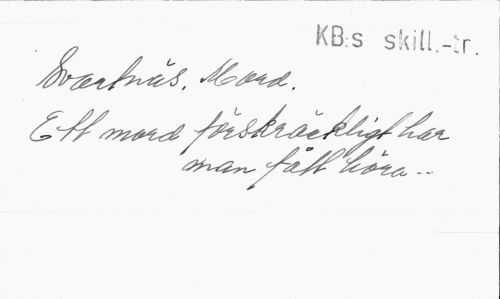 KB:s skill.-tr.
Svartnäs. Mord.
Ett mord förskräckligt har
man fått höra --